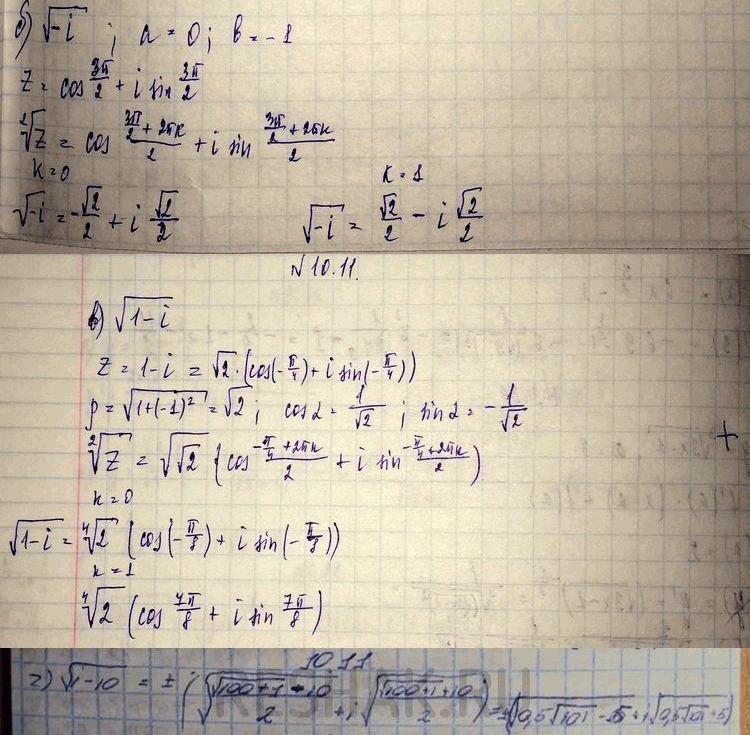 б) √-i ; a = 0; b = -1
z = cos 3π/2 + i sin 3π/2
²√z = cos (3π/2 + 2πk)/2 + i sin (3π/2 + 2πk)/2
k = 0 k = 1
√-i = -√2/2 + i √2/2 √-i = √2/2 - i √2/2
N 10.11.
в) √1-i
z = 1-i = √2·(cos(-π/4) + i sin(-π/4))
ρ = √1+(-1)² = √2; cos α = 1/√2; sin α = -1/√2
²√z = √√2 (cos (-π/4 + 2πk)/2 + i sin (-π/4 + 2πk)/2) +
k = 0
√1-i = ⁴√2 (cos(-π/8) + i sin(-π/8))
k = 1
⁴√2 (cos 7π/8 + i sin 7π/8)
10.11
г) √i-10 = ± (√(√100+1 - 10)/2 + i √(√100+1 + 10)/2) = ±(√0,5√101 - 5 + i √0,5√101 + 5)
RESHAK.RU